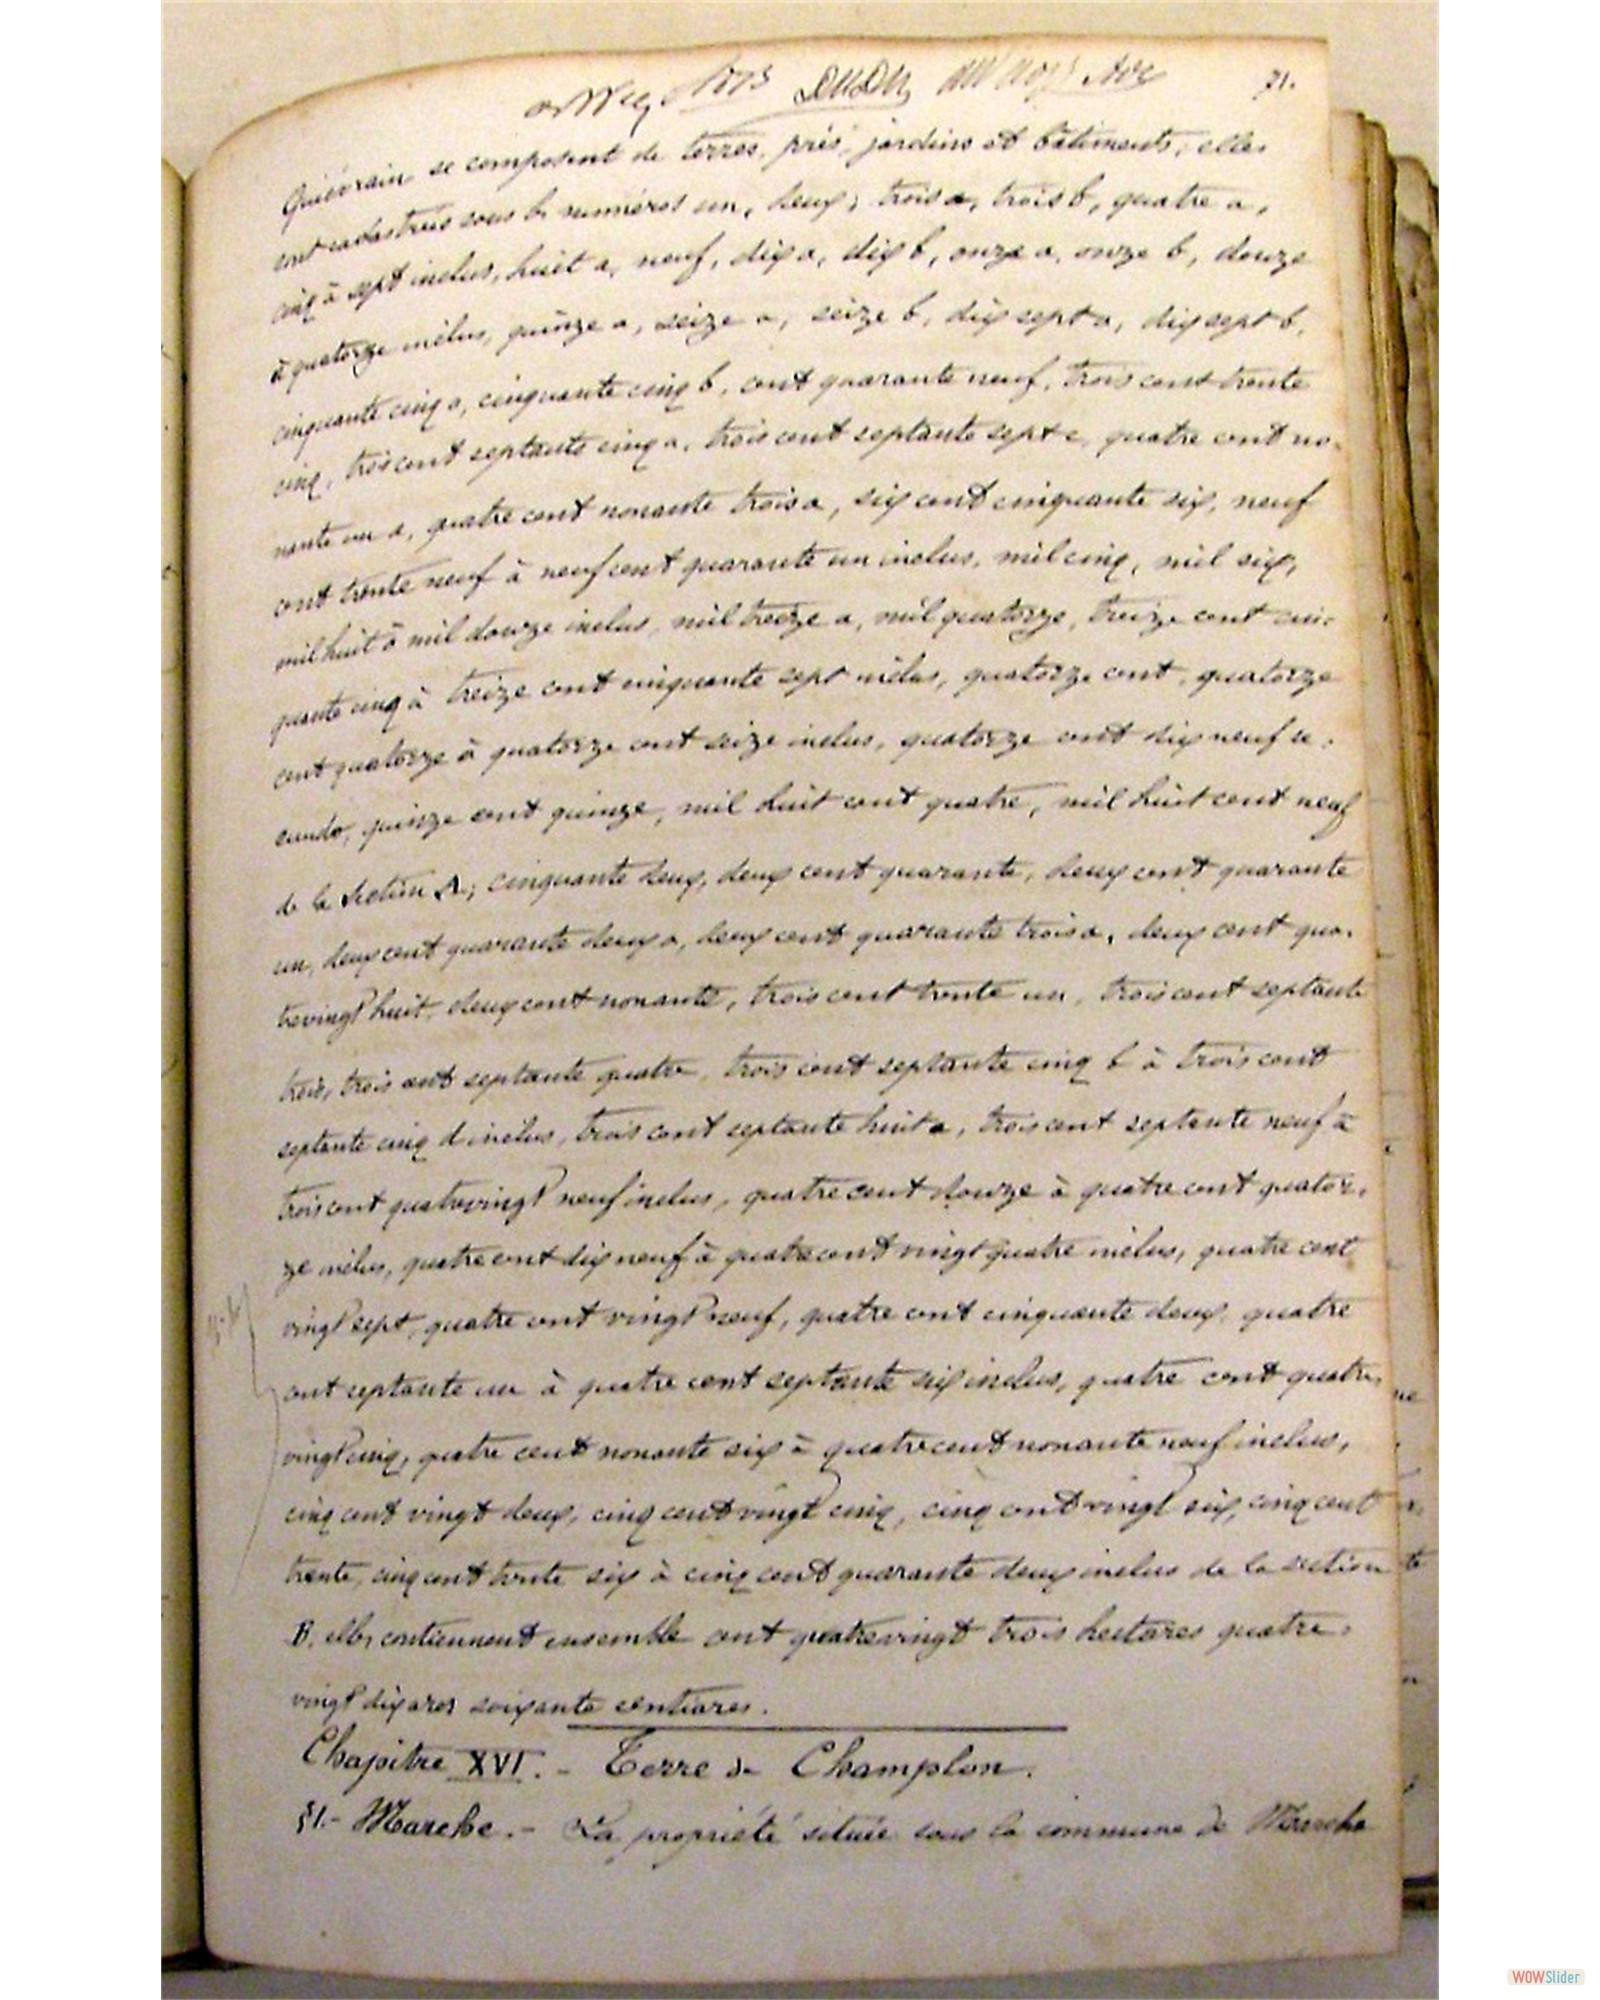 71.
Quiévrain se composent de terres, prés, jardins et bâtiments; elles
sont cadastrées sous les numéros un, deux, trois a, trois b, quatre a,
cinq à sept inclus, huit a, neuf, dix a, dix b, onze a, onze b, douze
à quatorze inclus, quinze a, seize a, seize b, dix sept a, dix sept b,
cinquante cinq a, cinquante cinq b, cent quarante neuf, trois cent trente
cinq, trois cent septante cinq a, trois cent septante sept c, quatre cent no-
nante un a, quatre cent nonante trois a, six cent cinquante six, neuf
cent trente neuf à neuf cent quarante un inclus, mil cinq, mil six,
mil huit à mil douze inclus, mil treize a, mil quatorze, treize cent cin-
quante cinq à treize cent cinquante sept inclus, quatorze cent, quatorze
cent quatorze à quatorze cent seize inclus, quatorze cent dix neuf se-
cundo, quinze cent quinze, mil huit cent quatre, mil huit cent neuf
de la Section A; cinquante deux, deux cent quarante, deux cent quarante
un, deux cent quarante deux a, deux cent quarante trois a, deux cent qua-
trevingt huit, deux cent nonante, trois cent trente un, trois cent septante
trois, trois cent septante quatre, trois cent septante cinq b à trois cent
septante cinq d inclus, trois cent septante huit a, trois cent septante neuf à
trois cent quatrevingt neuf inclus, quatre cent douze à quatre cent quator-
ze inclus, quatre cent dix neuf à quatre cent vingt quatre inclus, quatre cent
vingt sept, quatre cent vingt neuf, quatre cent cinquante deux, quatre
cent septante un à quatre cent septante six inclus, quatre cent quatre-
vingt cinq, quatre cent nonante six à quatre cent nonante neuf inclus,
cinq cent vingt deux, cinq cent vingt cinq, cinq cent vingt six, cinq cent
trente, cinq cent trente six à cinq cent quarante deux inclus de la section
B, elles contiennent ensemble cent quatrevingt trois hectares quatre-
vingt dix ares soixante centiares.
Chapitre XVI. - Terre de Champlon.
§1. - Marche. - La propriété située sous la commune de Marche
WOWSlider